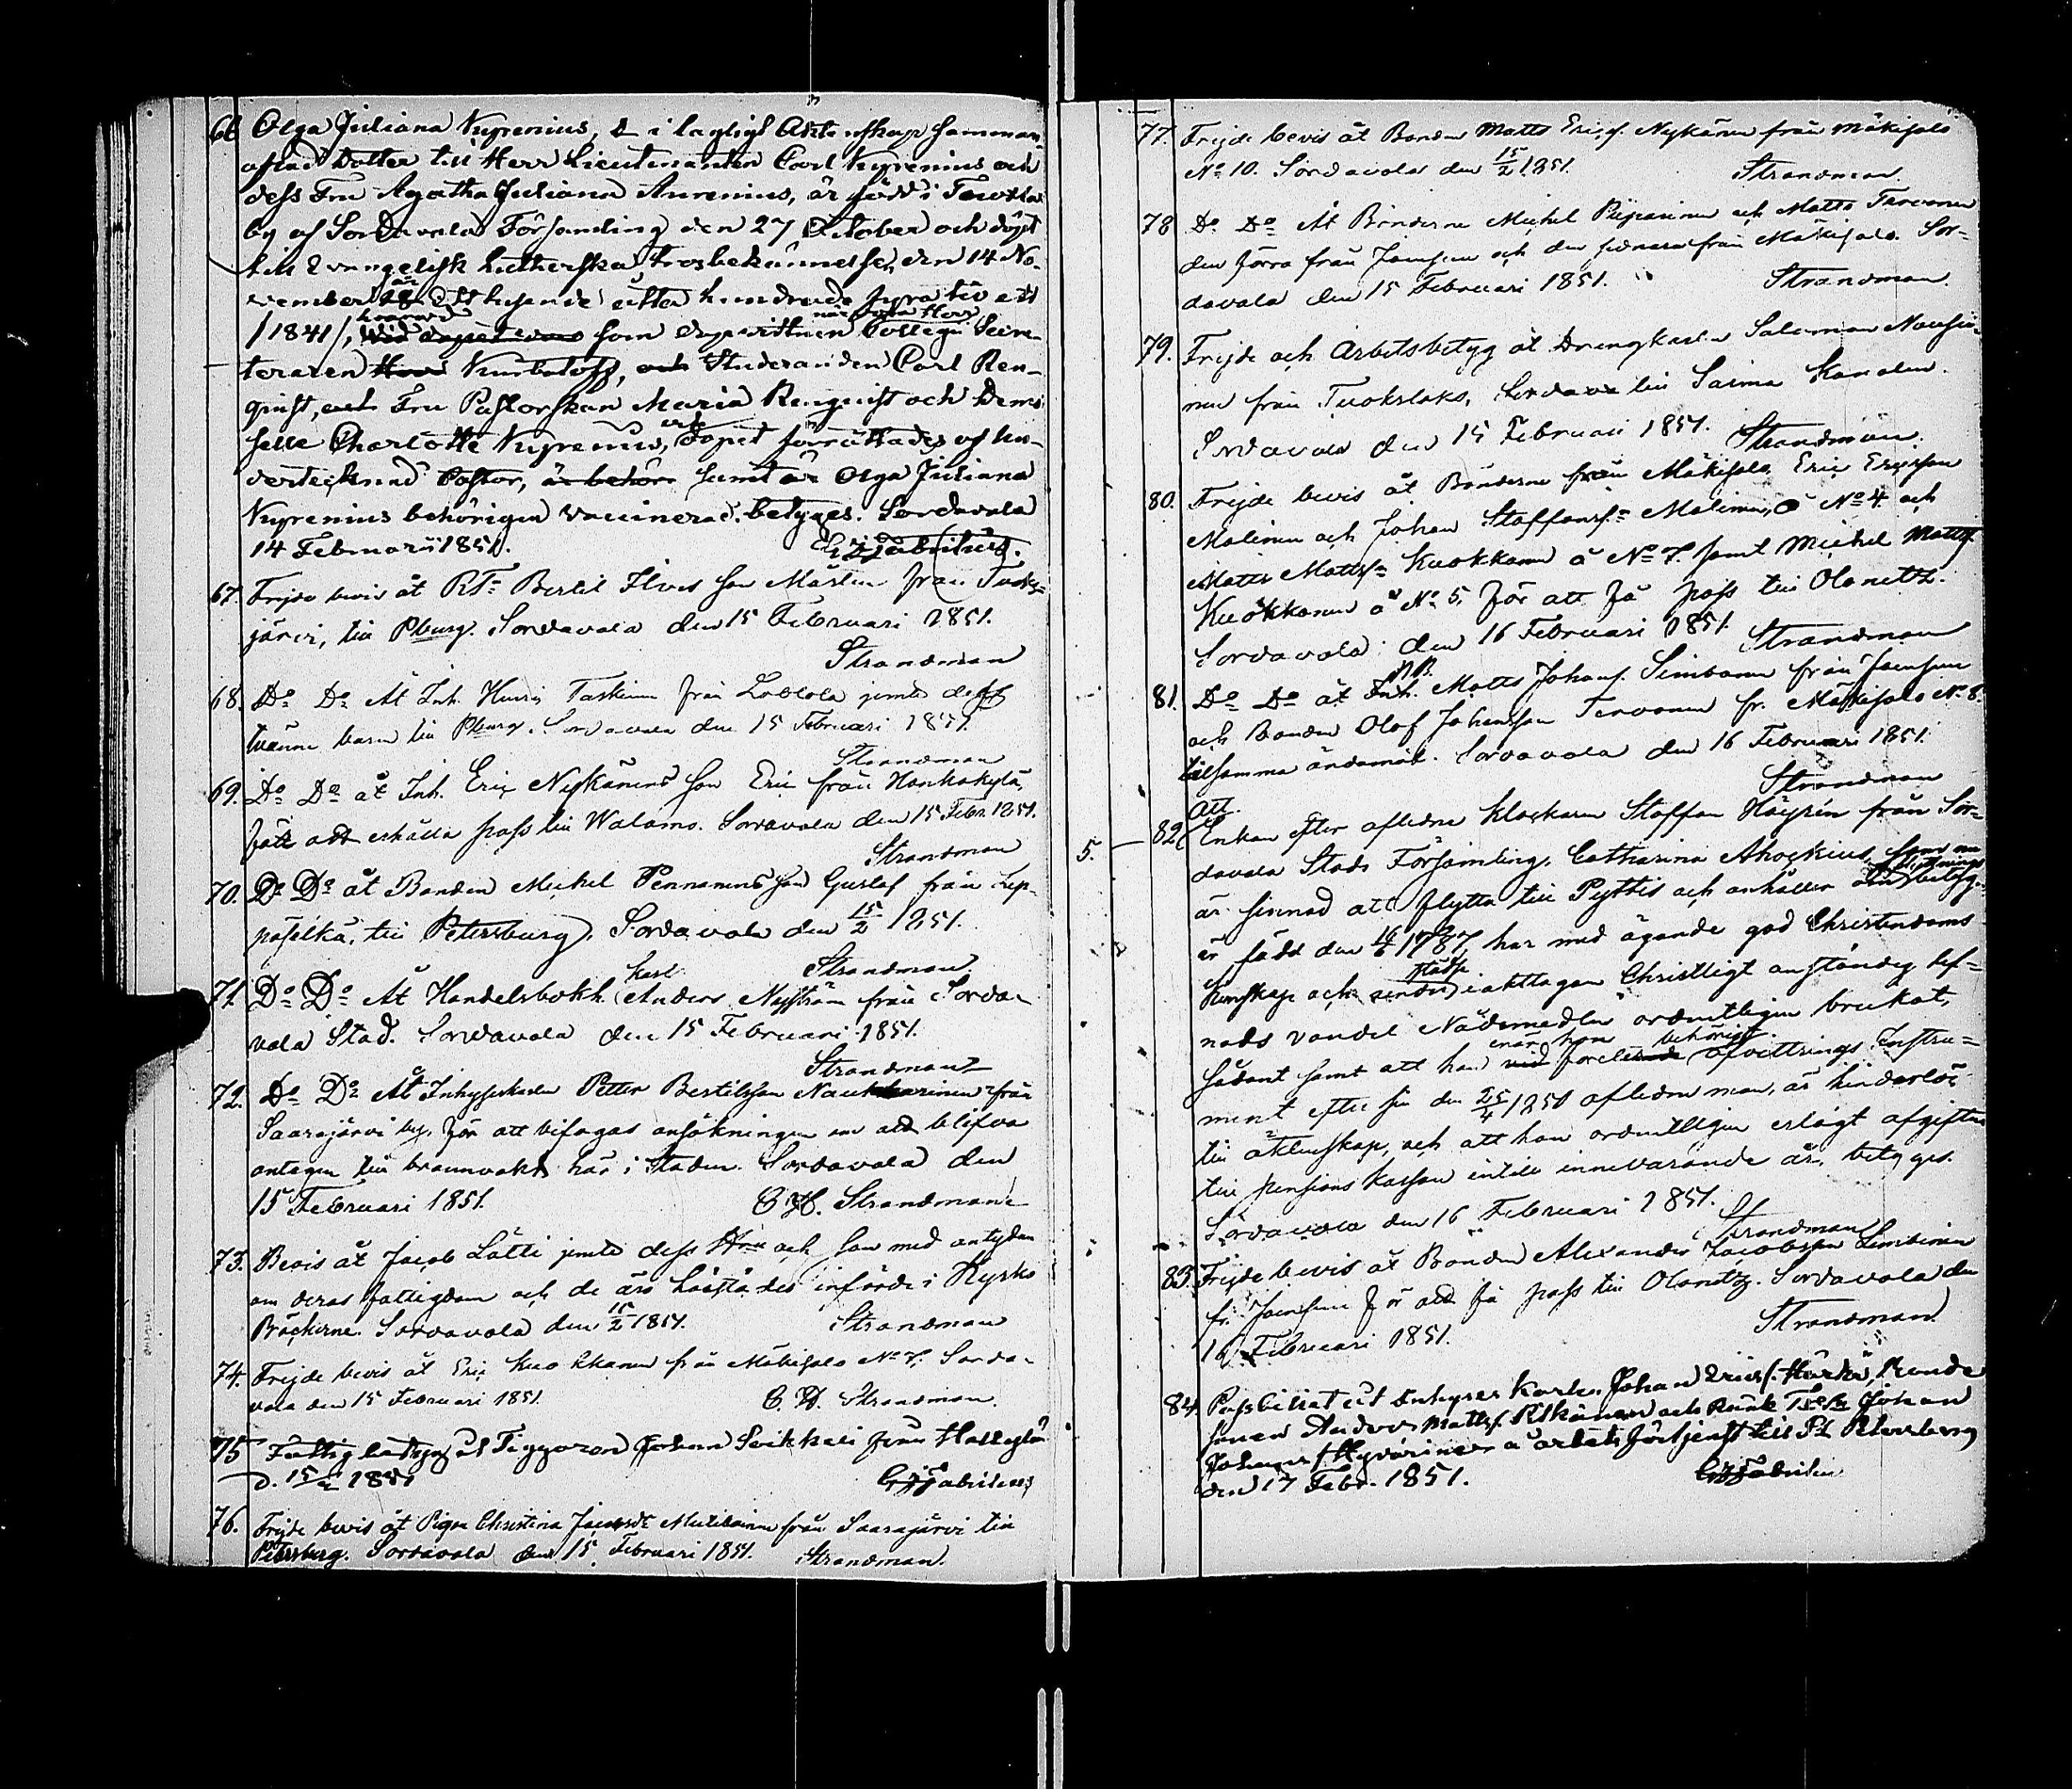 66 Olga Juliana Nyrenius, i lagligt Äktenskap samman-
aflad Dotter till Herr Lieutenanten Carl Nyrenius och
dess Fru Agatha Juliana Aurenius, är född i
by af Sordavala Församling den 27 October och döpt
till Evangelisk Lutherska trosbekännelsen den 14 No-
vember år Ett tusende åtta hundrade fyratio ett
/1841/, hvarvid som dopvittnen när voro Herr Collegii Secre-
teraren Studeranden Carl Ren-
qvist, Fru Pastorskan Maria Renqvist och Demoi-
selle Charlotte Nyrenius, och dopet förrättades af un-
dertecknad Pastor, samt är Olga Juliana
Nyrenius behörigen vaccinerad. betygas. Sordavala
14 Februarii 1851. Fabritius.
67. Frejde bevis åt Bertil Ilves son Mårten från Tuoks-
järvi, till Pburg. Sordavala den 15 Februari 1851.
Strandman
68. Do Do Åt Inh. Henric Taskinen från jemte dess
tvänne barn till Pburg. Sordavala den 15 Februari 1851.
Strandman
69. Do Do åt Inh. Eric Nykänens son Eric från Honkakylä,
för att erhålla pass till Walamo. Sordavala den 15 Febr. 1851.
Strandman
70. Do Do åt Bonden Michel Pennanens son Gustaf från Lep-
päselkä, till Petersburg. Sordavala den 15/2 1851.
Strandman
71. Do Do Åt Handelsbokh. Karl Anders Nyström från Sorda-
vala Stad. Sordavala den 15 Februari 1851.
Strandman
72. Do Do Åt Inhyseskarlen Petter Bertilsson Naukkarinen från
Saarajärvi by, för att bifogas ansökningen om att blifva
antagen till brannvakt här i Staden. Sordavala den
15 Februari 1851. C. H. Strandman
73. Bevis åt Jacob Lätti jemte dess Hru och son med antydan
om deras fattigdom och de äro härstädes införde i Kyrko
Böckerne. Sordavala den 15/2 1851. Strandman
74. Frejde bevis åt Eric Kuokkanen från Mäkisalo No 7. Sorda-
vala den 15 Februari 1851. C. H. Strandman.
75 Fattig betyg åt Tiggaren Johan Seikkeli från
d. 15/2 1851 Fabritius
76. Frejde bevis åt Pigan Christina Jacobsdr från Saarajärvi till
Petersburg. Sordavala den 15 Februari 1851. Strandman.
77. Frejde bevis åt Bonden Matts Ericss. Nykänen från Mäkisalo
No 10. Sordavala den 15/2 1851. Strandman.
78 Do Do Åt Bönderne Michel och Matts Tervonen
den förra från Joensuu och den sednare från Mäkisalo. Sor-
davala den 15 Februari 1851. Strandman.
79. Frejde och Arbetsbetyg åt Drengkarlen Salomon
nen från Tuokslaks, till Saima Kanalen.
Sordavala den 15 Februari 1851. Strandman.
80. Frejde bevis åt Bönderne från Mäkisalo, Eric Ericsson
Malinen och Johan Staffanss:n Malinen, å No 4. och
Matts Mattss:n Kuokkanen å No 7. samt Michel Mattss
Kuokkanen å No 5, för att få pass till Olonetz.
Sordavala den 16 Februari 1851. Strandman
81. Do Do åt Inh. NB. Matts Johanss. Simbanen från Joensuu
och Bonden Olof Johansson Tervonen fr. Mäkisalo No 8.
till samma ändamål. Sordavala den 16 Februari 1851.
Strandman
5. 82. Att Enkan efter aflidne klockaren Staffan Häyrén från Sor-
davala Stads Församling, Catharina Ahockius, som nu
är sinnad att flytta till Pyttis och anhåller om flyttnings betyg.
är född den 1787, har med ägande god Christendoms
kunskap och städse iakttagen Christligt anständig lef-
nads vandel Nådemedlen ordentligen brukat,
sådant samt att hon enär hon behörigt afvittrings Instru-
ment efter sin den 25/4 1850 aflidne man, är hinderlös
till äktenskap, och att hon ordentligen erlagt afgiften
till pensions Kassan intill innevarande år, betygas.
Sordavala den 16 Februari 1851. Strandman
83. Frejde bevis åt Bonden Alexander Jacobsson
fr. Joensuu för att få pass till Olonetz. Sordavala den
16 Februari 1851. Strandman
84. Pass biliat åt Inhyses Karlen Johan Ericss. Härkö, Bonde
sonen Anders Mattss. och Johan
Johanss. Hyvärinen å arbets förtjenst till St Petersburg
den 17 Febr. 1851. Fabritius